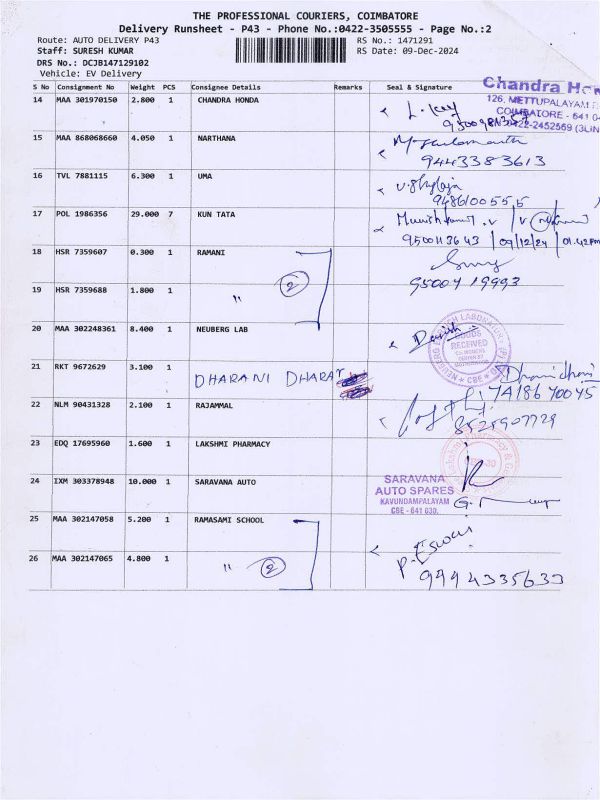 THE PROFESSIONAL COURIERS, COIMBATORE
Delivery Runsheet - P43 - Phone No.:0422-3505555 - Page No.:2
Route: AUTO DELIVERY P43 RS No.: 1471291
Staff: SURESH KUMAR RS Date: 09-Dec-2024
DRS No.: DCJB147129102
Vehicle: EV Delivery
S No Consignment No Weight PCS Consignee Details Remarks Seal & Signature
Chandra
14 MAA 301970150 2.800 1 CHANDRA HONDA
126, METTUPALAYAM
COIMBATORE - 641 0
0422-2452569 (3LIN
15 MAA 868068660 4.050 1 NARTHANA
9443383613
16 TVL 7881115 6.300 1 UMA
9486100555
17 POL 1986356 29.000 7 KUN TATA
9500113643 09/12/24 01:42pm
18 HSR 7359607 0.300 1 RAMANI
2
9500419993
19 HSR 7359688 1.800 1 "
20 MAA 302248361 8.400 1 NEUBERG LAB
GOODS
RECEIVED
CBE
21 RKT 9672629 3.100 1 DHARANI DHARAT
7418670045
22 NLM 90431328 2.100 1 RAJAMMAL
8525907729
23 EDQ 17695960 1.600 1 LAKSHMI PHARMACY
24 IXM 303378948 10.000 1 SARAVANA AUTO
SARAVANA
AUTO SPARES
KAVUNDAMPALAYAM
CBE - 641 030.
25 MAA 302147058 5.200 1 RAMASAMI SCHOOL
P. Eswari
26 MAA 302147065 4.800 1 " 2
9994335633